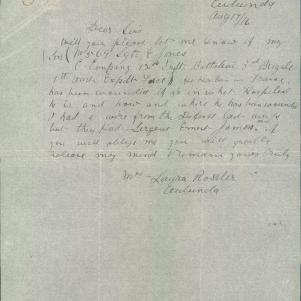 Eudunda
Aug 17/16
Dear Sir
Will you please let me know if my
Son Sgt E Jones
C Company Inft Battalion 3rd Brigade
1st Aust Expdt Force France
has been wounded if so in what Hospital
he is and how and where he was wounded
I had a wire from the Defence
but they had Sergent Ernest James. if
you will oblige me you will greatly
relieve my mind I remain yours truly
Mrs Laura Rosslar
Eudunda